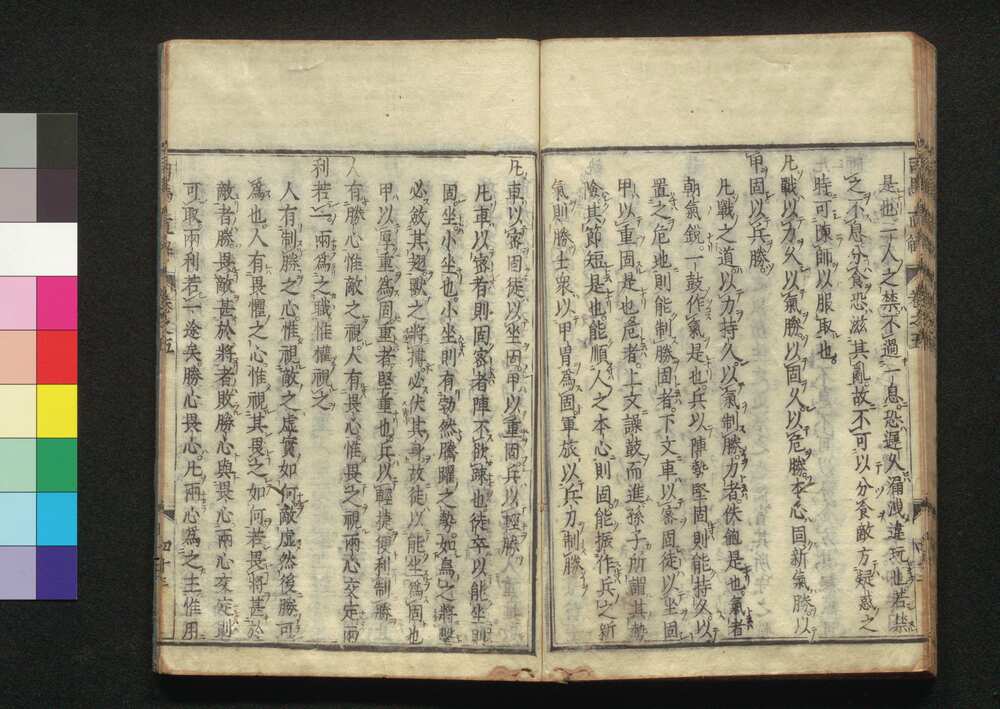 是也一人之禁不過一息恐遲久漏洩違玩也若禁
之不息分食恐滋其亂故不可以分食敵方疑惑之
時可陳師以服取也
凡戰以力久以氣勝以固久以危勝本心固新氣勝以
甲固以兵勝
凡戰之道以力持久以氣制勝力者佚飽是也氣者
朝氣銳一鼓作氣是也兵以陣勢堅固則能持久以
置之危地則能制勝固者下文車以密固徒以坐固
甲以重固是也危者上文譟鼓而進孫子所謂其勢
險其節短是也能順人之本心則固能振作兵之新
氣則勝士衆以甲冑為固軍旅以兵刃制勝
凡車以密固徒以坐固甲以重固兵以輕勝
凡車以密者有則固密者陣不欲疎也徒卒以能坐則
固坐小坐也小坐則有勃然騰躍之勢如鳥之將擊
必斂其翅獸之將搏必伏其身故徒以能坐為固也
甲以厚重為固重者堅重也兵以輕捷便利制勝
人有勝心惟敵之視人有畏心惟畏之視兩心交定兩
利若一兩為之職惟權視之
人有制勝之心惟視敵之虛實如何敵虛然後勝可
為也人有畏懼之心惟視其畏之如何若畏將甚於
敵者勝畏敵甚於將者敗勝心與畏心兩心交定則
可取兩利若一途矣勝心畏心凡兩心為之主惟用